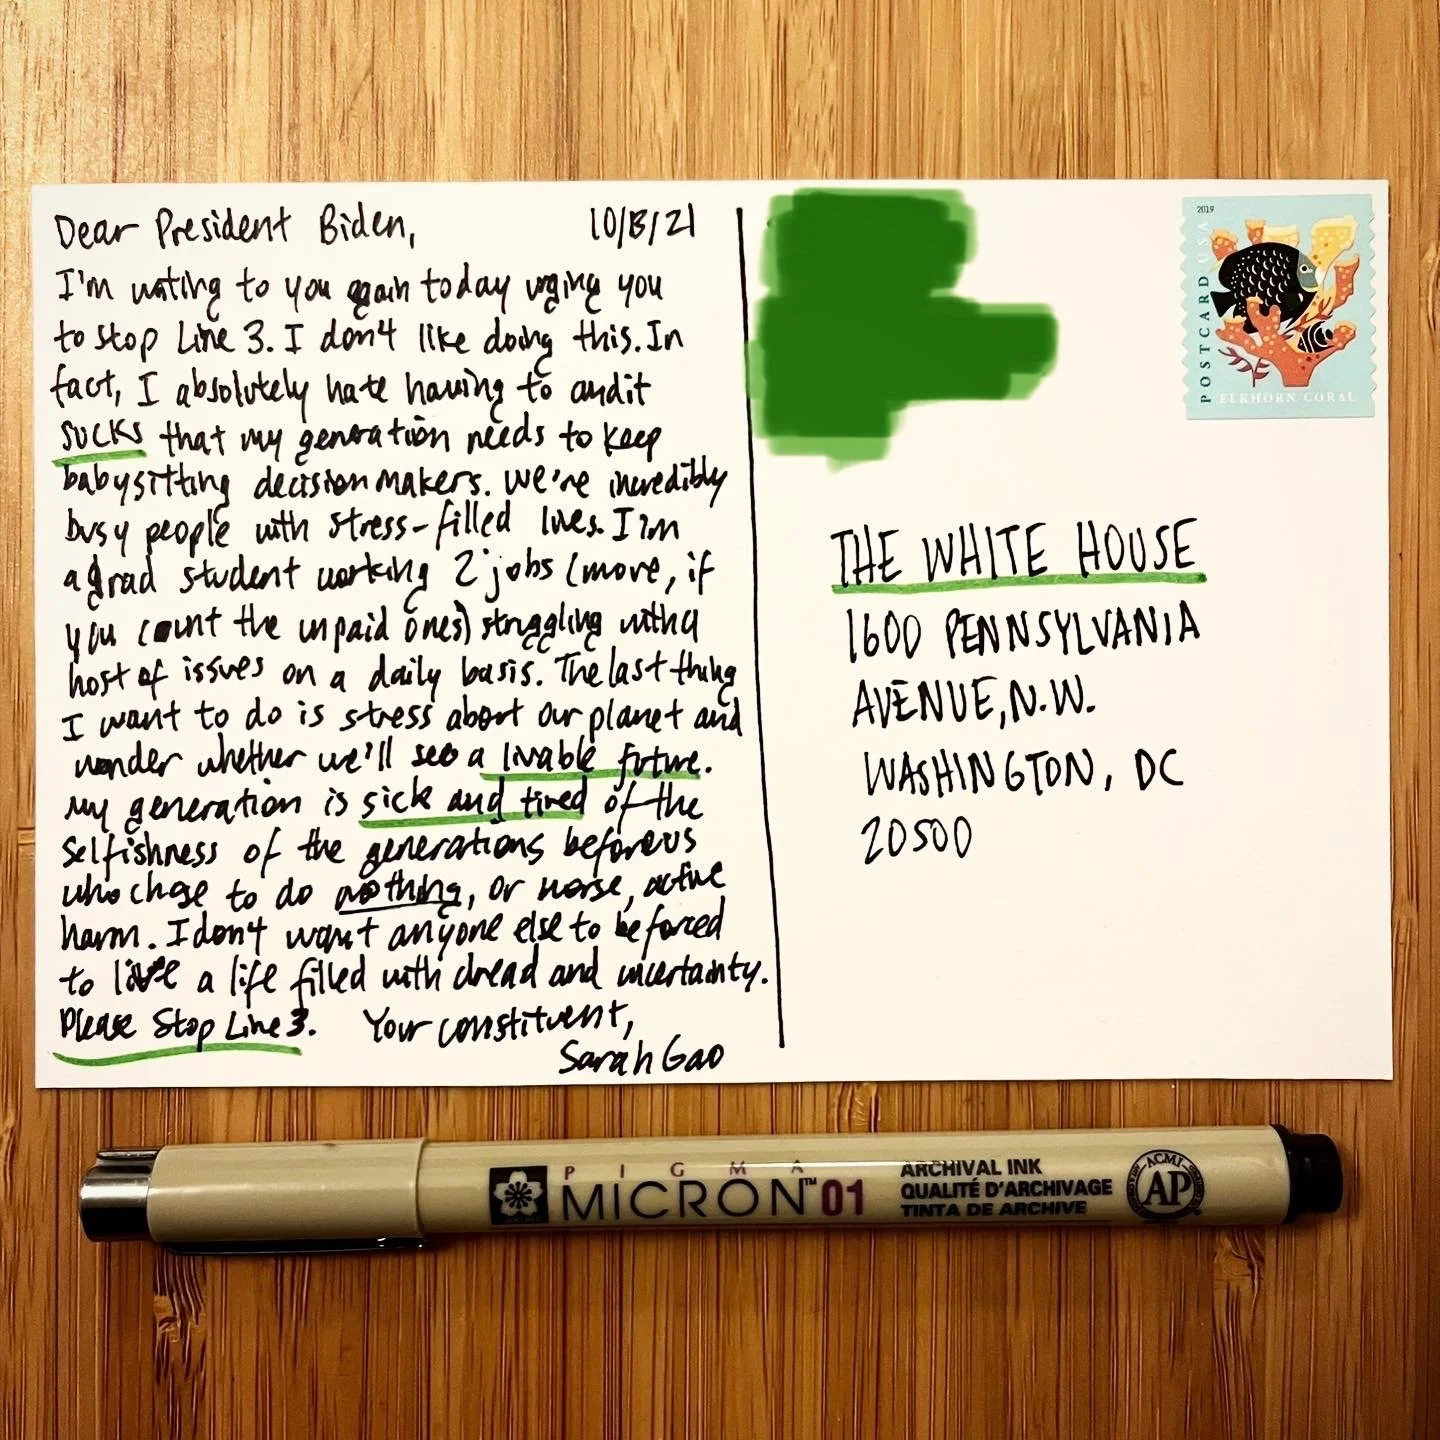 Dear President Biden, 10/13/21
I'm writing to you again today urging you
to stop Line 3. I don't like doing this. In
fact, I absolutely hate having to and it
sucks that my generation needs to keep
babysitting decision makers. We're incredibly
busy people with stress-filled lives. I'm
a grad student working 2 jobs (more, if
you count the unpaid ones) struggling with a
host of issues on a daily basis. The last thing
I want to do is stress about our planet and
wonder whether we'll see a livable future.
My generation is sick and tired of the
selfishness of the generations before us
who chose to do nothing, or worse, active
harm. I don't want anyone else to be forced
to live a life filled with dread and uncertainty.
Please Stop Line 3. Your constituent,
Sarah Gao
2019
POSTCARD USA
ELKHORN CORAL
THE WHITE HOUSE
1600 PENNSYLVANIA
AVENUE, N.W.
WASHINGTON, DC
20500
PIGMA
MICRON™ 01
ARCHIVAL INK
QUALITÉ D'ARCHIVAGE
TINTA DE ARCHIVE
ACMI
AP